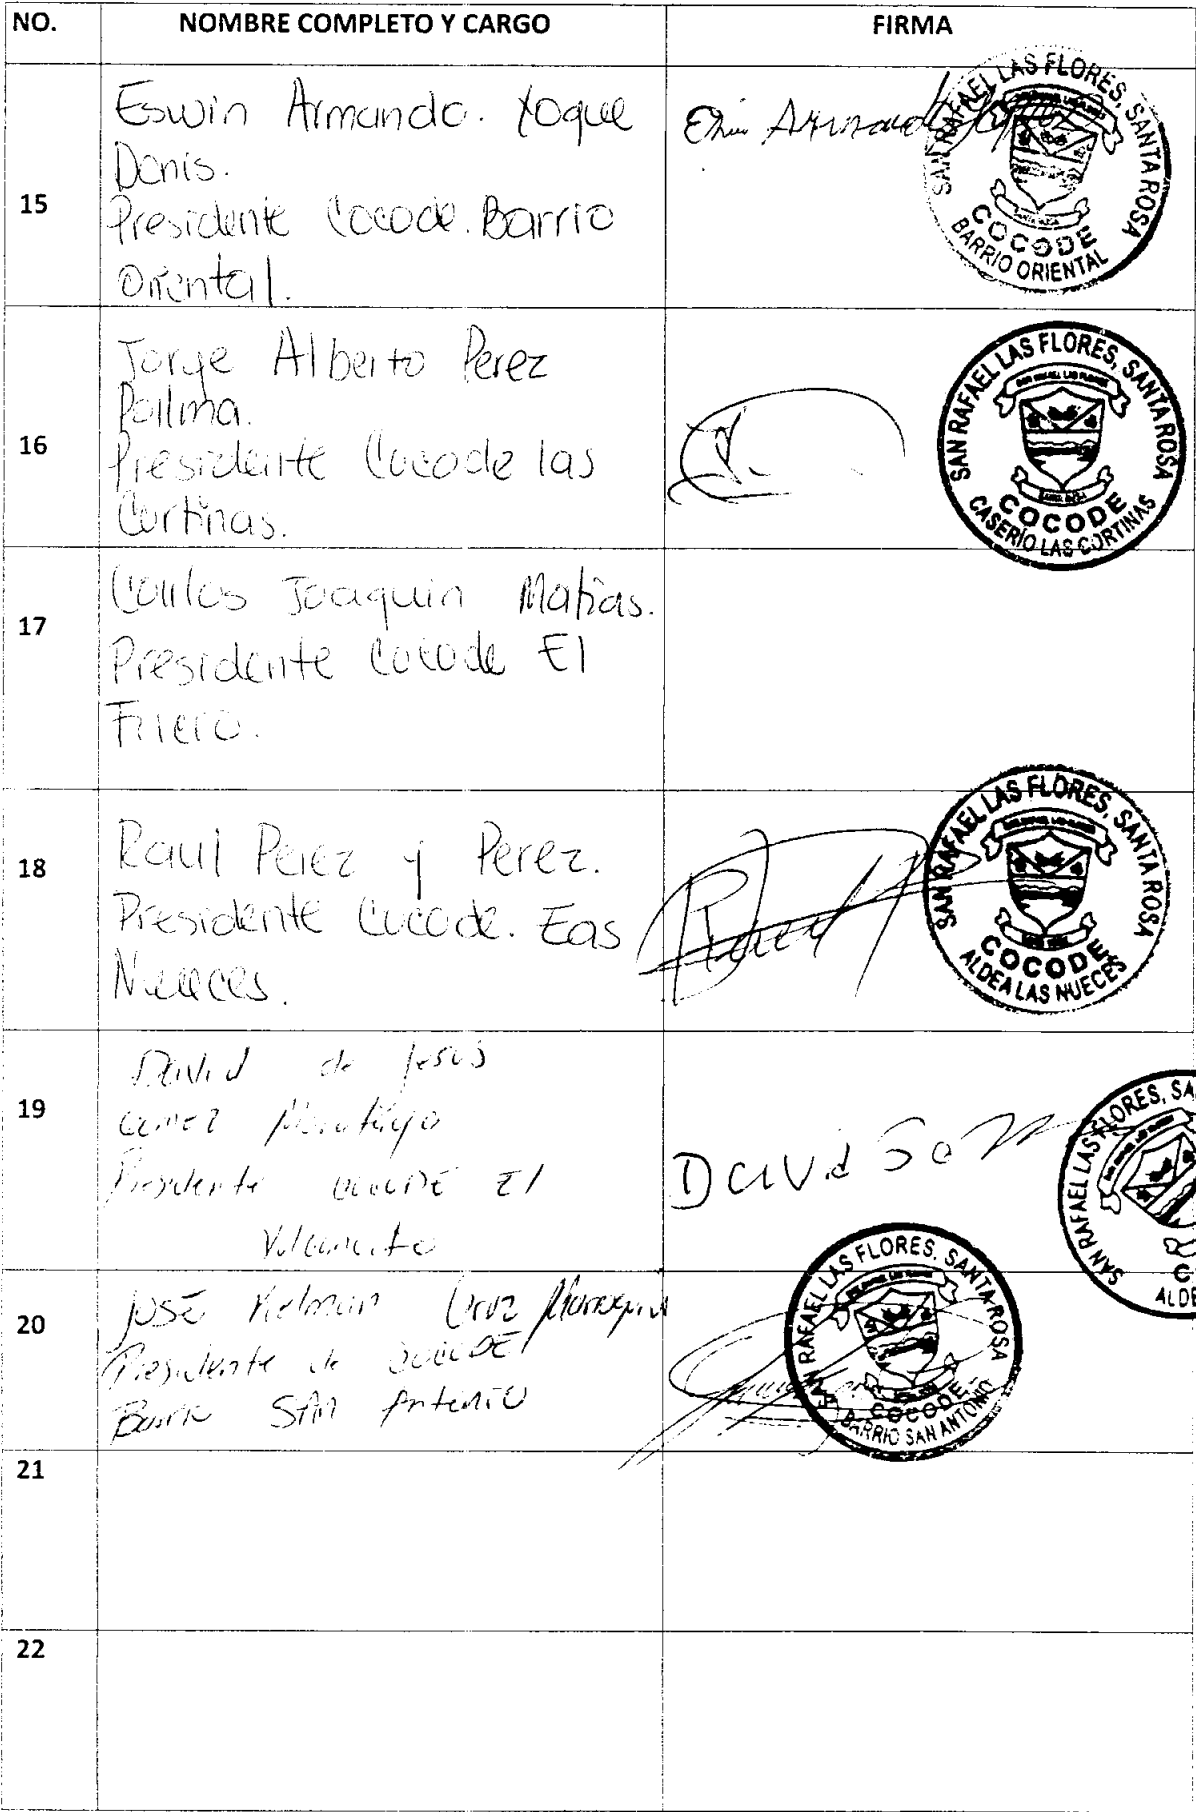 NO. NOMBRE COMPLETO Y CARGO FIRMA
15
Eswin Armando. Xoque
Donis.
Presidente Cocode. Barrio
Oriental.
Armando
SAN RAFAEL LAS FLORES, SANTA ROSA
COCODE
BARRIO ORIENTAL
16
Jorge Alberto Perez
Palma.
Presidente Cocode las
Cortinas.
SAN RAFAEL LAS FLORES, SANTA ROSA
COCODE
CASERÍO LAS CORTINAS
17
Carlos Joaquin Matias.
Presidente Cocode El
18
Raul Perez y Perez.
Presidente Cocode. Las
Nueces.
SAN RAFAEL LAS FLORES, SANTA ROSA
COCODE
ALDEA LAS NUECES
19
David de Jesus
Presidente COCODE El
Volcancito
David
SAN RAFAEL LAS FLORES, SA
C
ALDE
20
José Cruz
Presidente de COCODE
Barrio SAn Antonio
SAN RAFAEL LAS FLORES, SANTA ROSA
COCODE
BARRIO SAN ANTONIO
21
22